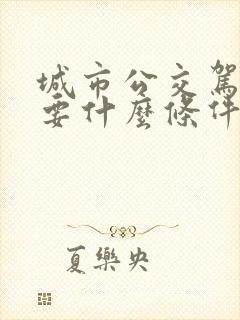 城市公交駕
要什麼條件
夏樂央